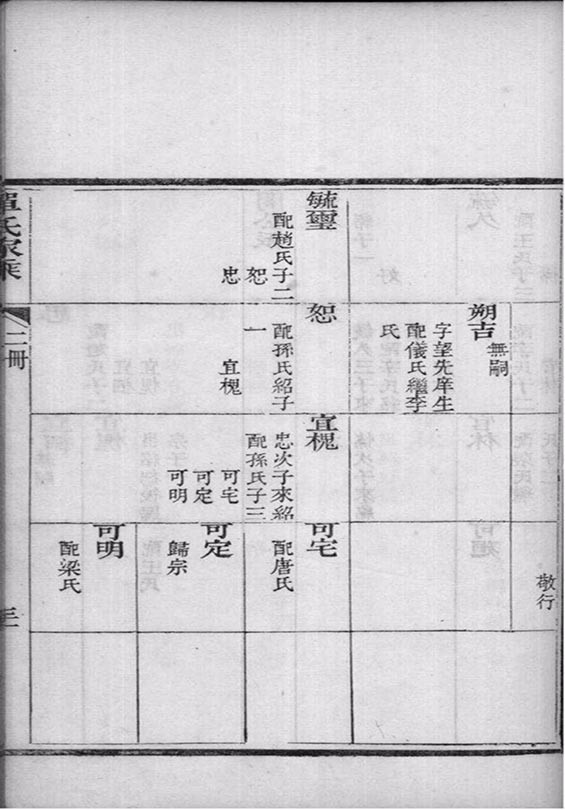 敬行
朔吉
無嗣
字望先庠生
配儀氏繼李
氏
毓璽
配趙氏子二
恕
忠
恕
配孫氏紹子
一
宜槐
宜槐
忠次子來紹
配孫氏子三
可宅
可定
可明
可宅
配唐氏
可定
歸宗
可明
配梁氏
單氏家乘
二冊
三